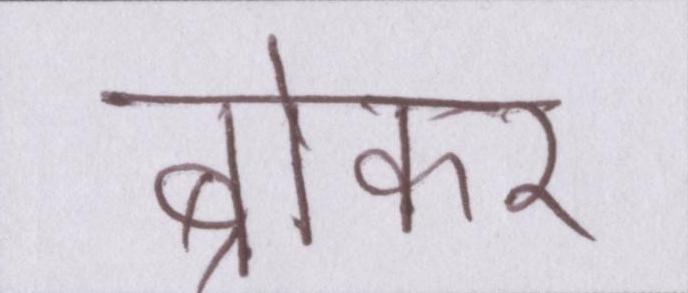 ब्रोकर